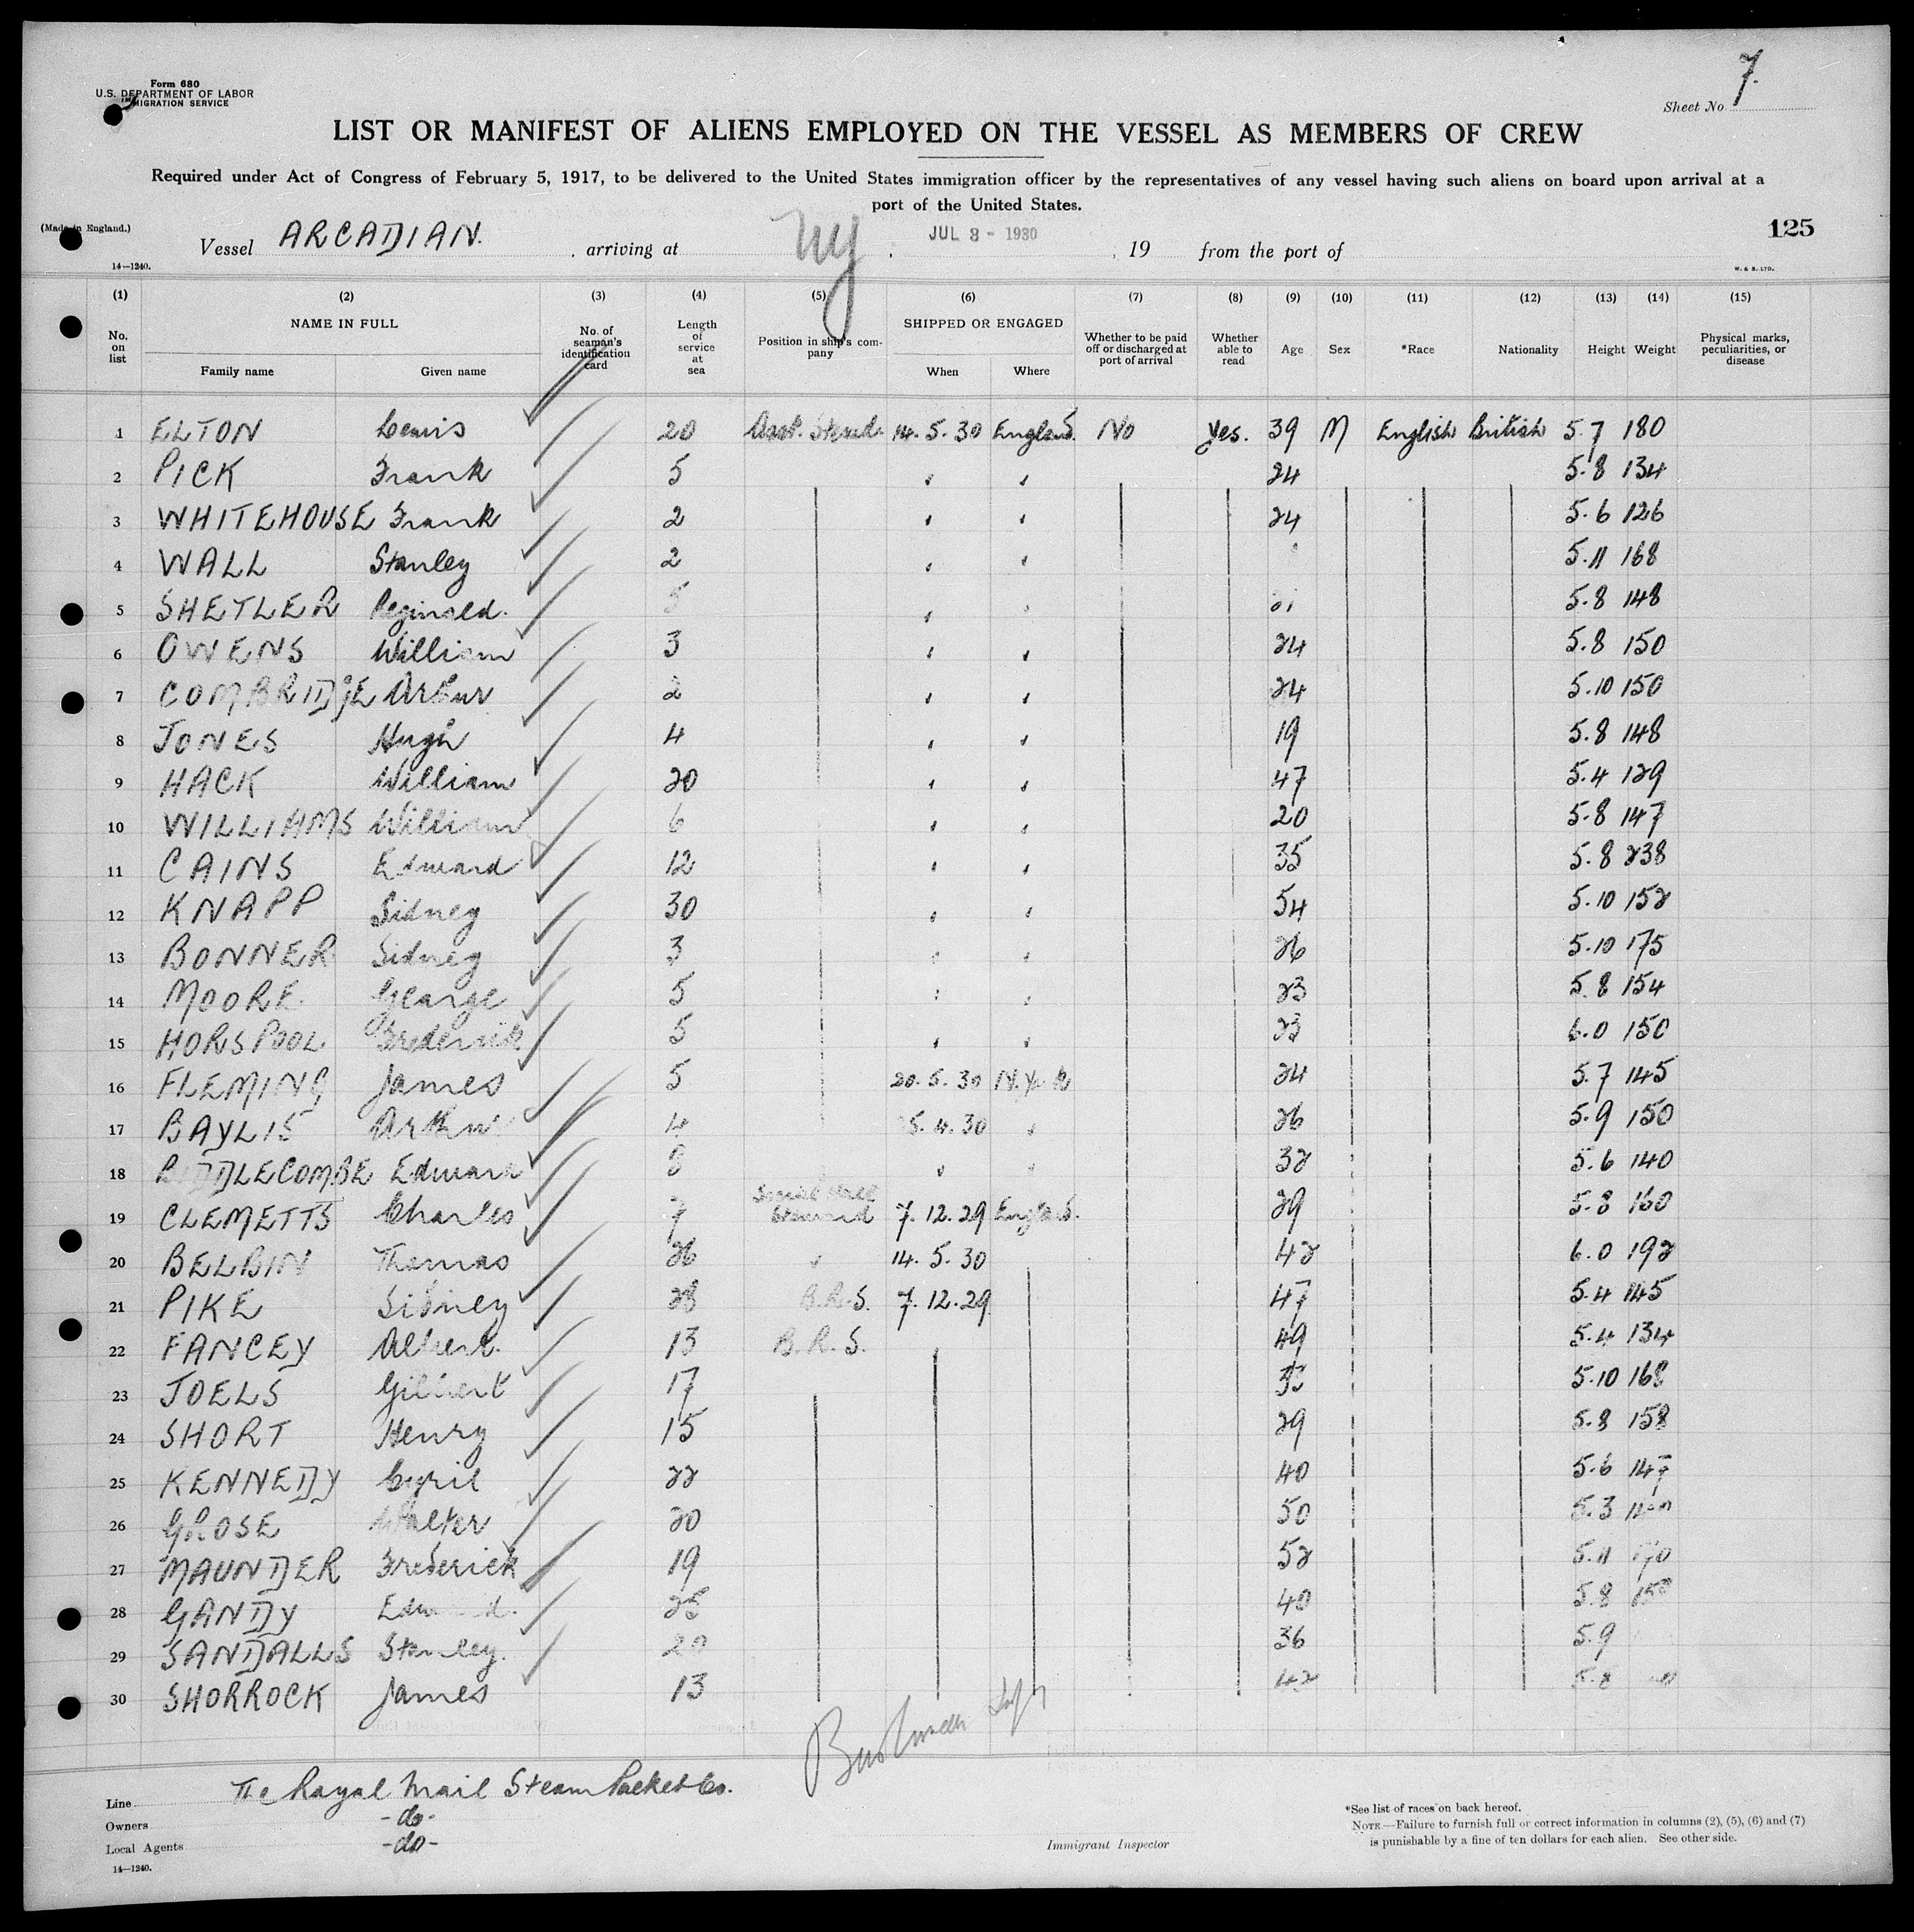 Form 680
U.S. DEPARTMENT OF LABOR
IMMIGRATION SERVICE
Sheet No 7.
LIST OR MANIFEST OF ALIENS EMPLOYED ON THE VESSEL AS MEMBERS OF CREW
Required under Act of Congress of February 5, 1917, to be delivered to the United States immigration officer by the representatives of any vessel having such aliens on board upon arrival at a
port of the United States.
(Made in England.)
125
Vessel ARCADIAN. , arriving at NY , JUL 3 - 1930 , 19 from the port of
14—1240.
W. & S. LTD.
(1) (2) (3) (4) (5) (6) (7) (8) (9) (10) (11) (12) (13) (14) (15)
No. on list NAME IN FULL Family name Given name No. of seaman's identification card Length of service at sea Position in ship's company SHIPPED OR ENGAGED When Where Whether to be paid off or discharged at port of arrival Whether able to read Age Sex *Race Nationality Height Weight Physical marks, peculiarities, or disease
1 ELTON Lewis 20 Asst. Stewd. 14. 5. 30 England. No Yes. 39 M English British 5. 7 180
2 PICK Frank 5 " " 24 5. 8 134
3 WHITEHOUSE Frank 2 " " 24 5. 6 126
4 WALL Stanley 2 " " 5. 11 168
5 SHETLER Reginald. 5 " " 5. 8 148
6 OWENS William 3 " " 24 5. 8 150
7 COMBRIDGE Arthur 2 " " 24 5. 10 150
8 JONES Hugh 4 " " 19 5. 8 148
9 HACK William 20 " " 47 5. 4 129
10 WILLIAMS William 6 " " 20 5. 8 147
11 CAINS Edward 12 " " 35 5. 8 238
12 KNAPP Sidney 30 " " 54 5. 10 152
13 BONNER Sidney 3 " " 26 5. 10 175
14 MOORE. George 5 " " 23 5. 8 154
15 HORSPOOL Frederick 5 " " 23 6. 0 150
16 FLEMING James 5 20. 5. 30 24 5. 7 145
17 BAYLIS Arthur 4 5. 4. 30 " 26 5. 9 150
18 BIDDLECOMBE Edward 8 " " 32 5. 6 140
19 CLEMETTS Charles 7 Social Hall Steward 7. 12. 29 England. 29 5. 8 160
20 BELBIN Thomas 26 " 14. 5. 30 42 6. 0 192
21 PIKE Sidney 28 B.R.S. 7. 12. 29 47 5. 4 145
22 FANCEY Albert. 13 B. R. S. 49 5. 4 134
23 JOELS Gilbert 17 5. 10 168
24 SHORT Henry 15 29 5. 8 158
25 KENNEDY Cyril 22 40 5. 6 147
26 GROSE Walter 20 50 5. 3
27 MAUNDER Frederick 19 52 5. 11
28 GANDY Edward. 25 40 5. 8 150
29 SANDALLS Stanley. 20 36 5. 9
30 SHORROCK James 13 42 5. 8
Line The Royal Mail Steam Packet Co.
Owners - do -
Local Agents - do -
14—1240.
Immigrant Inspector
*See list of races on back hereof.
NOTE.—Failure to furnish full or correct information in columns (2), (5), (6) and (7)
is punishable by a fine of ten dollars for each alien. See other side.